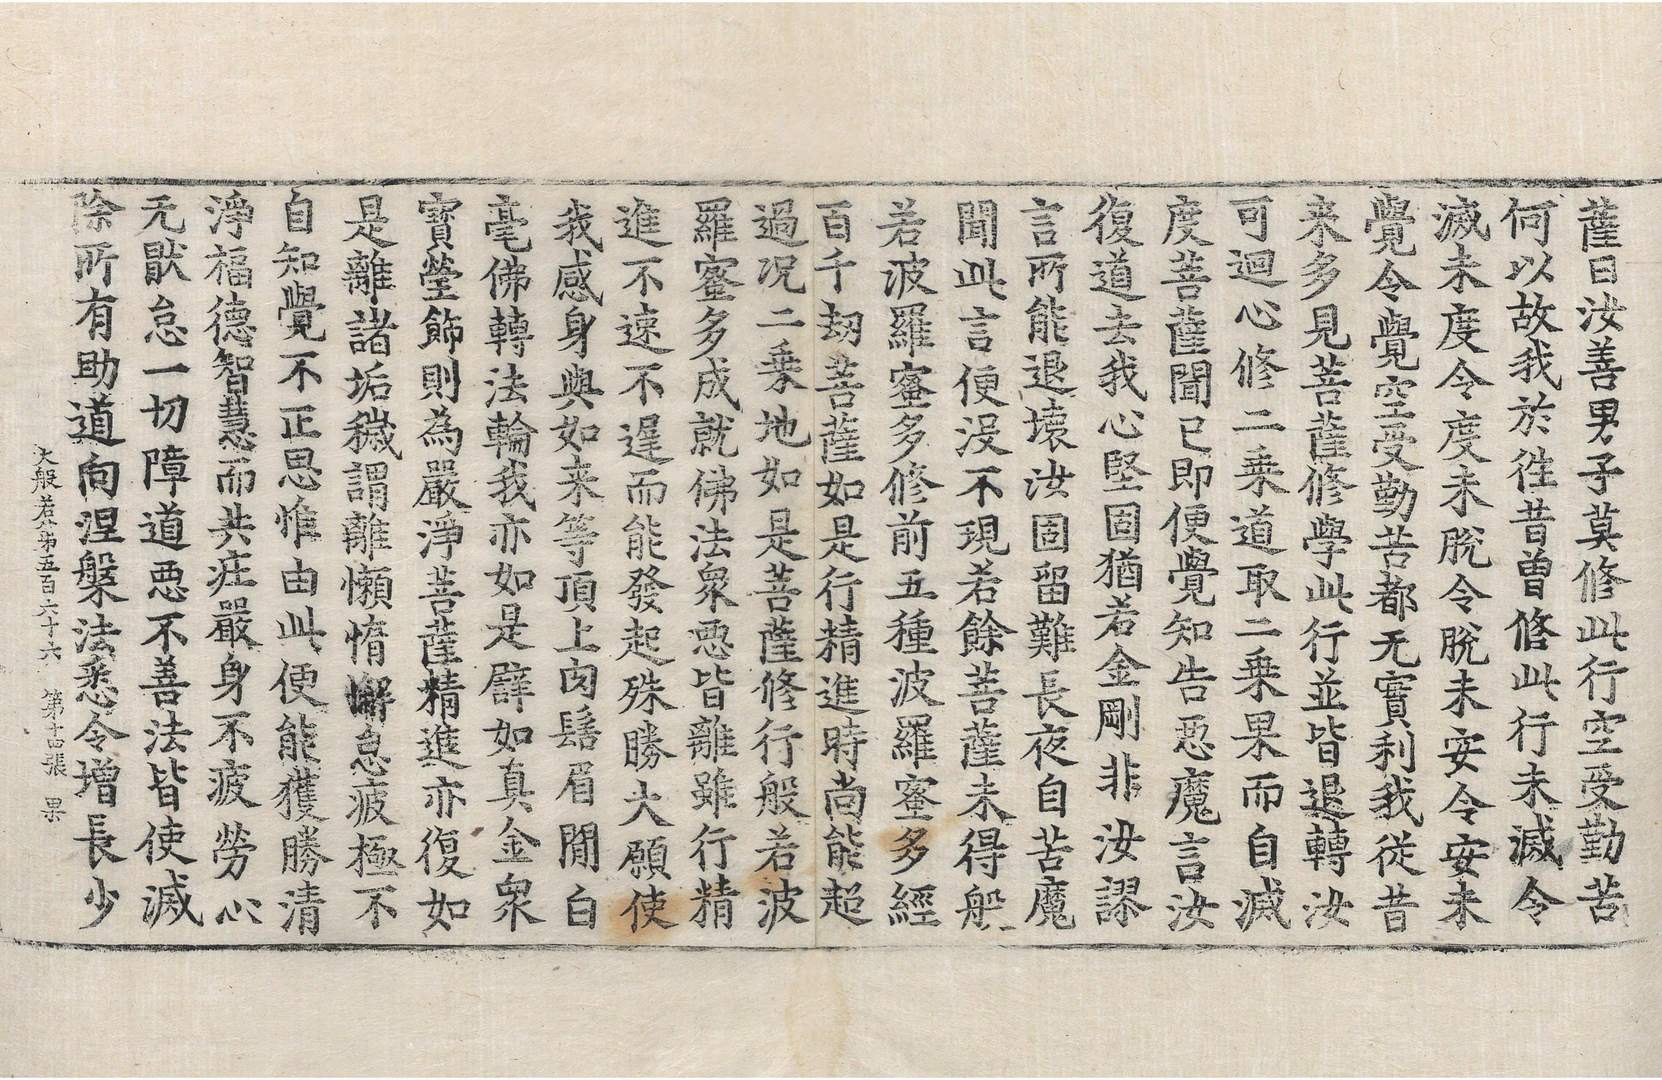 薩曰汝善男子莫修此行空受勤苦
何以故我於往昔曾修此行未滅令
滅未度令度未脫令脫未安令安未
覺令覺空受勤苦都无實利我從昔
来多見菩薩修學此行並皆退轉汝
可迴心修二乗道取二乗果而自滅
度菩薩聞已即便覺知告惡魔言汝
復道去我心堅固猶若金剛非汝謬
言所能退壞汝固留難長夜自苦魔
聞此言便没不現若餘菩薩未得般
若波羅蜜多修前五種波羅蜜多經
百千劫菩薩如是行精進時尚能超
過况二乗地如是菩薩修行般若波
羅蜜多成就佛法衆惡皆離雖行精
進不速不遲而能發起殊勝大願使
我感身與如来等頂上肉髻眉間白
毫佛轉法輪我亦如是譬如真金衆
寶瑩飾則為嚴淨菩薩精進亦復如
是離諸垢穢謂離懶惰懈怠疲極不
自知覺不正思惟由此便能獲勝清
淨福德智慧而共庄嚴身不疲勞心
无猒怠一切障道惡不善法皆使滅
除所有助道向涅槃法悉令增長少
大般若第五百六十六　第十四張　果